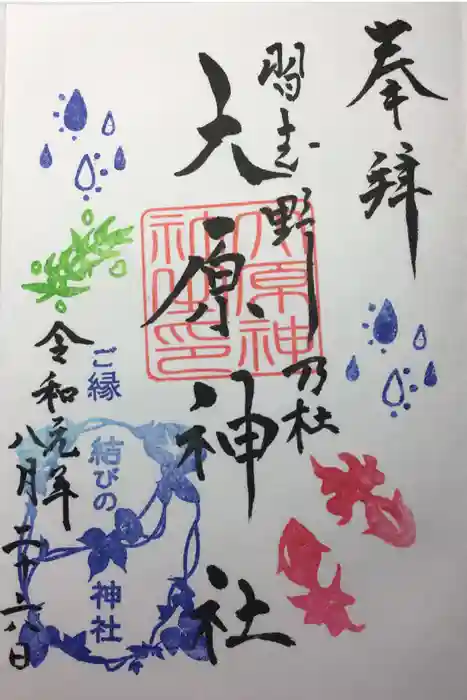 奉拝
習志野乃杜
大原神社
大原神
社之印
ご縁 結びの 神社
令和元年
八月二十六日